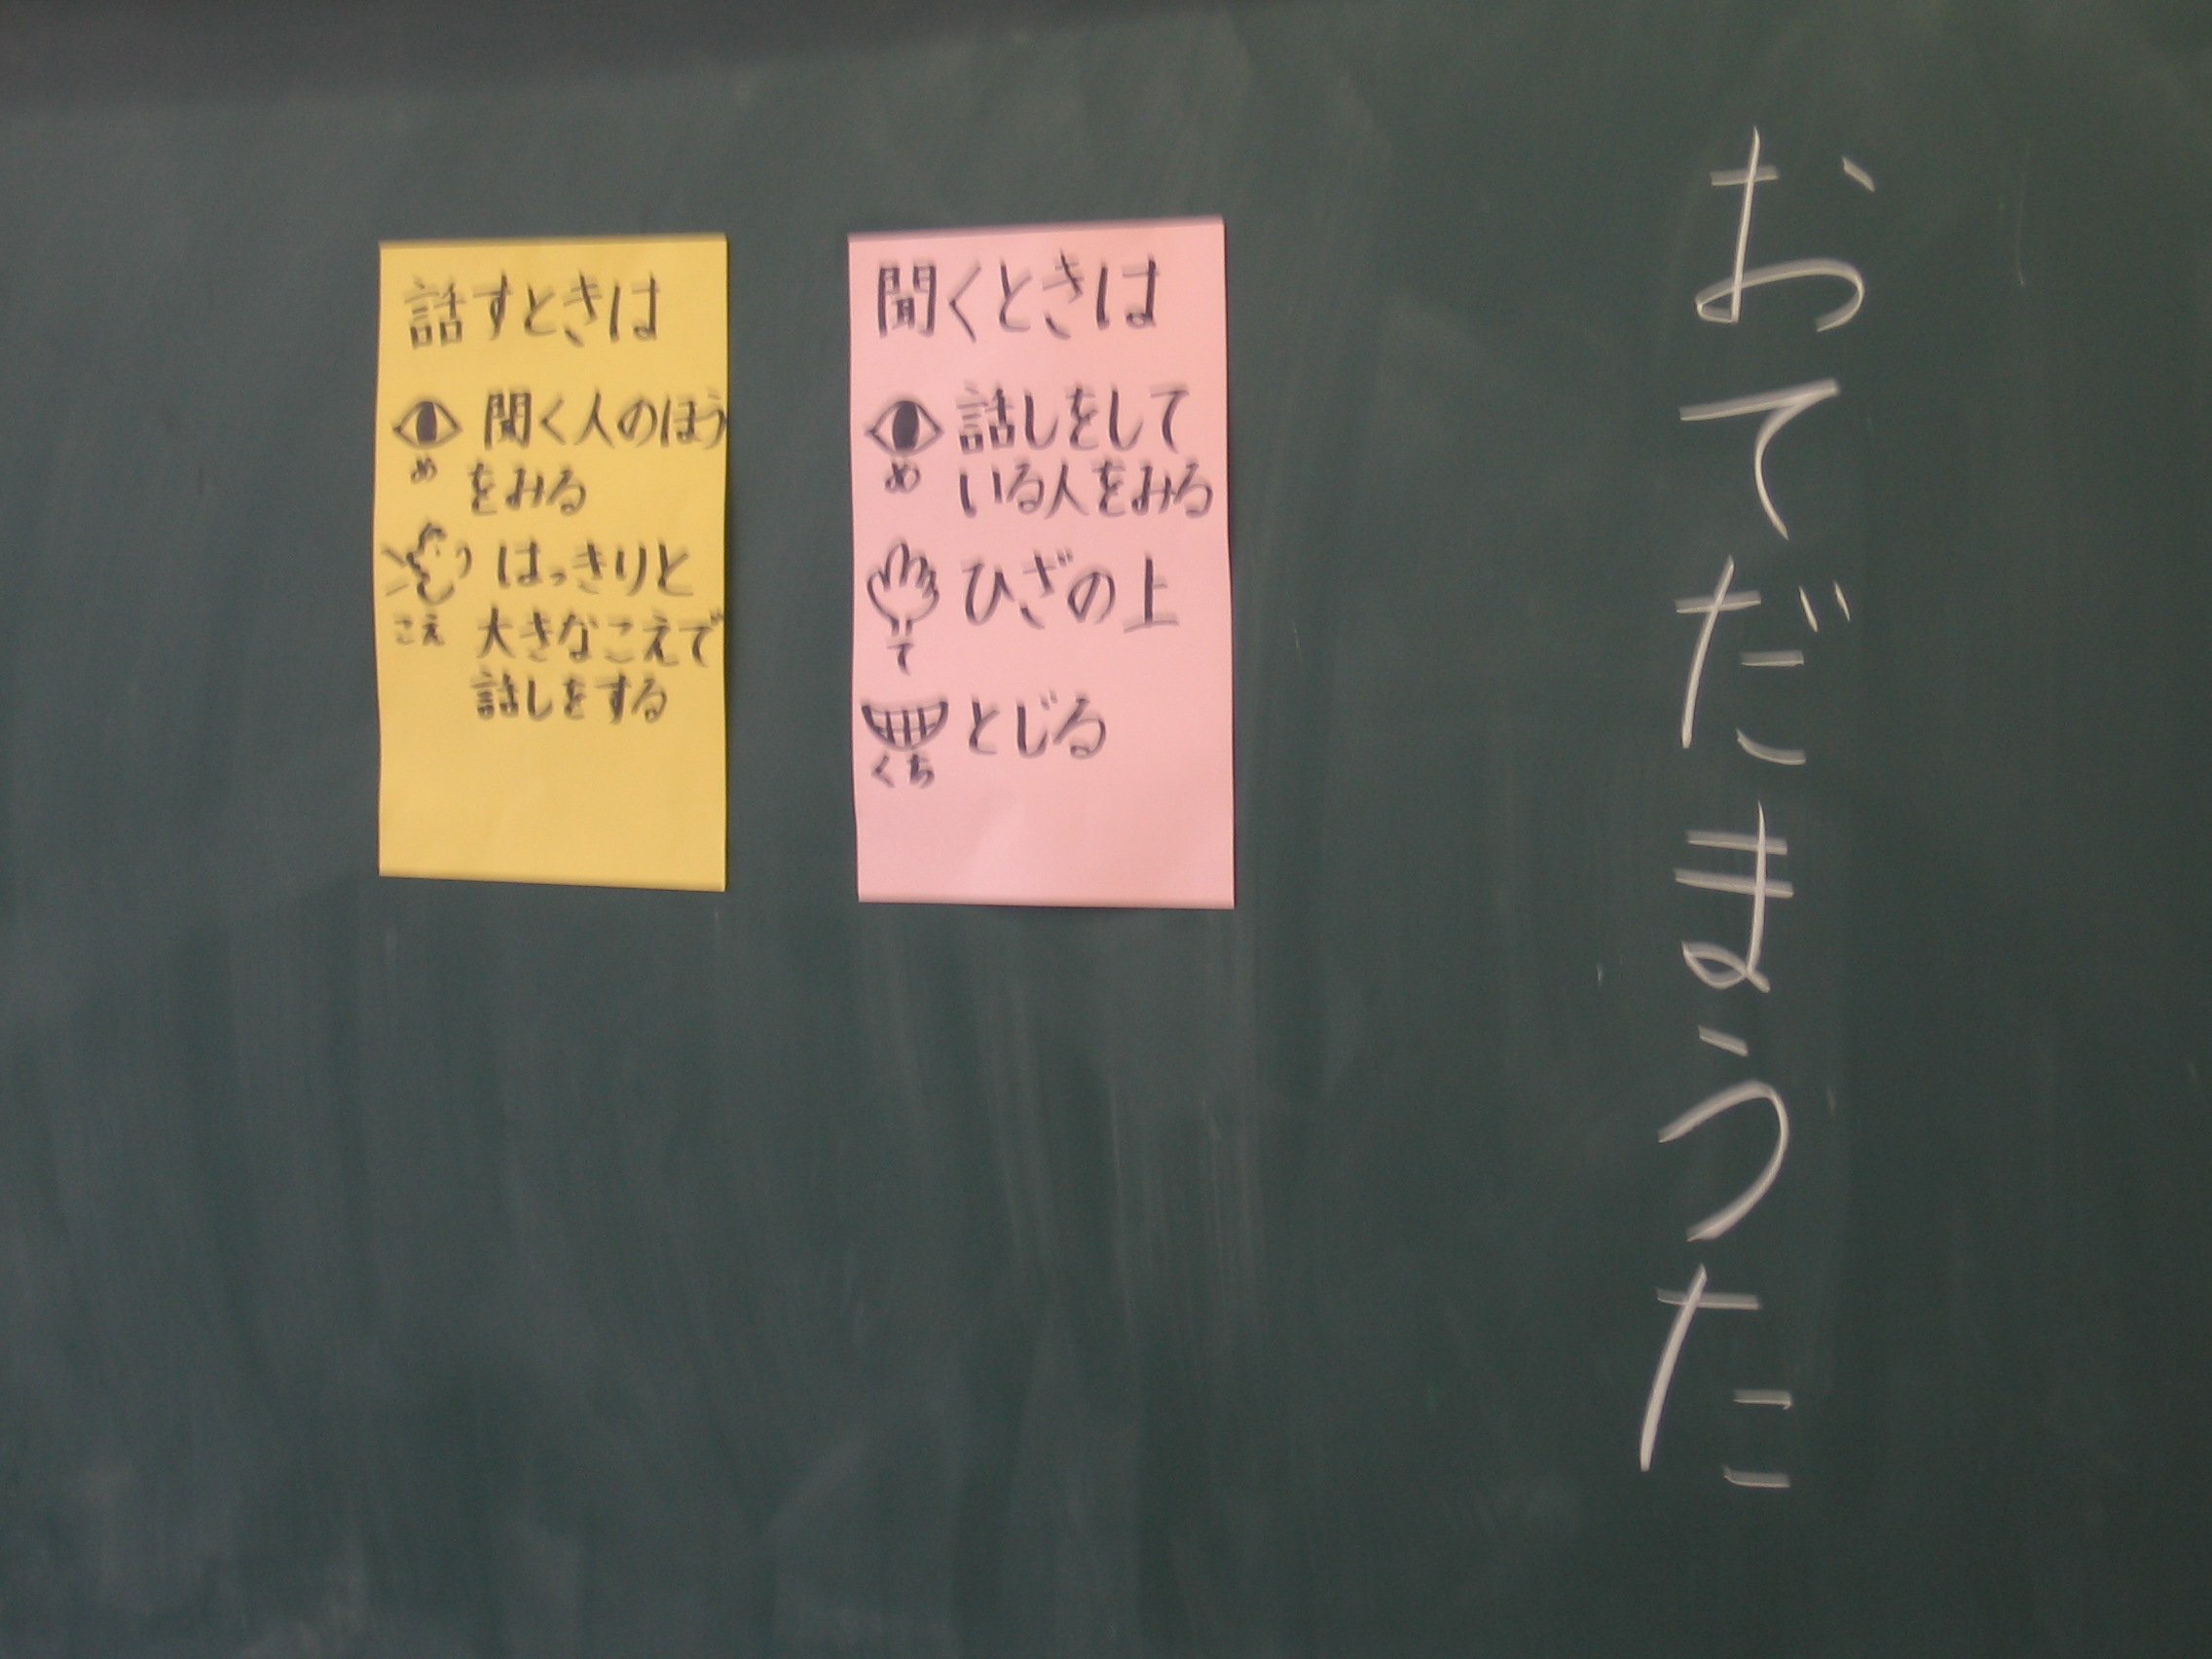 おてだまうた
聞くときは
め
話しをして
いる人をみる
て
ひざの上
くち
とじる
話すときは
め
聞く人のほう
をみる
こえ
はっきりと
大きなこえで
話しをする